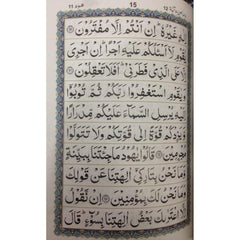 هود ١١
15
١٢
غَيْرُهٗ ؕ اِنْ اَنْتُمْ اِلَّا مُفْتَرُوْنَ
يٰقَوْمِ لَاۤ اَسْـَٔلُكُمْ عَلَيْهِ اَجْرًا ؕ اِنْ اَجْرِيَ
اِلَّا عَلَى الَّذِيْ فَطَرَنِيْ ؕ اَفَلَا تَعْقِلُوْنَ
وَيٰقَوْمِ اسْتَغْفِرُوْا رَبَّكُمْ ثُمَّ تُوْبُوْۤا
اِلَيْهِ يُرْسِلِ السَّمَآءَ عَلَيْكُمْ مِّدْرَارًا
وَّيَزِدْكُمْ قُوَّةً اِلٰى قُوَّتِكُمْ وَلَا تَتَوَلَّوْا
مُجْرِمِيْنَ قَالُوْا يٰهُوْدُ مَا جِئْتَنَا بِبَيِّنَةٍ
وَّمَا نَحْنُ بِتَارِكِيْۤ اٰلِهَتِنَا عَنْ قَوْلِكَ
وَمَا نَحْنُ لَكَ بِمُؤْمِنِيْنَ اِنْ نَّقُوْلُ
اِلَّا اعْتَرٰىكَ بَعْضُ اٰلِهَتِنَا بِسُوْٓءٍ ؕ قَالَ